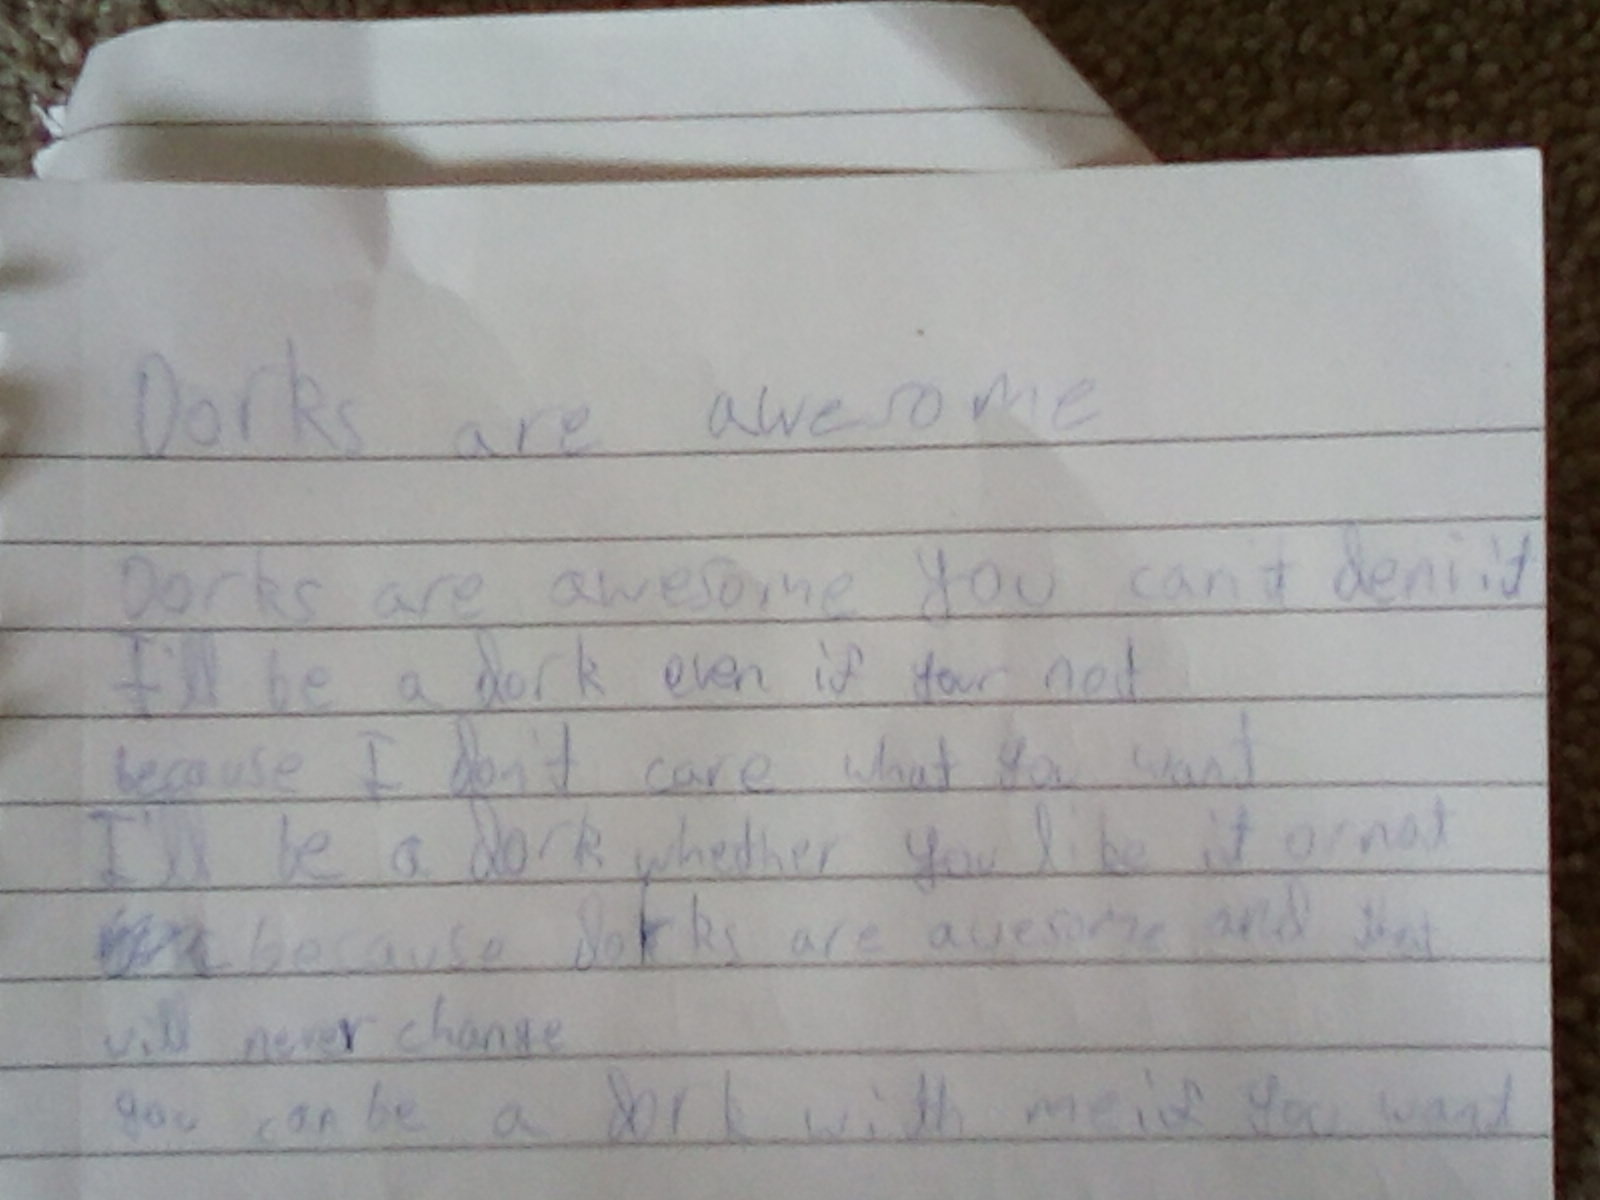 Dorks are awesome
Dorks are awesome you can't deni it
I'll be a dork even if your not
because I don't care what you want
I'll be a dork whether you like it or not
because dorks are awesome and that
will never change
you can be a dork with me if you want